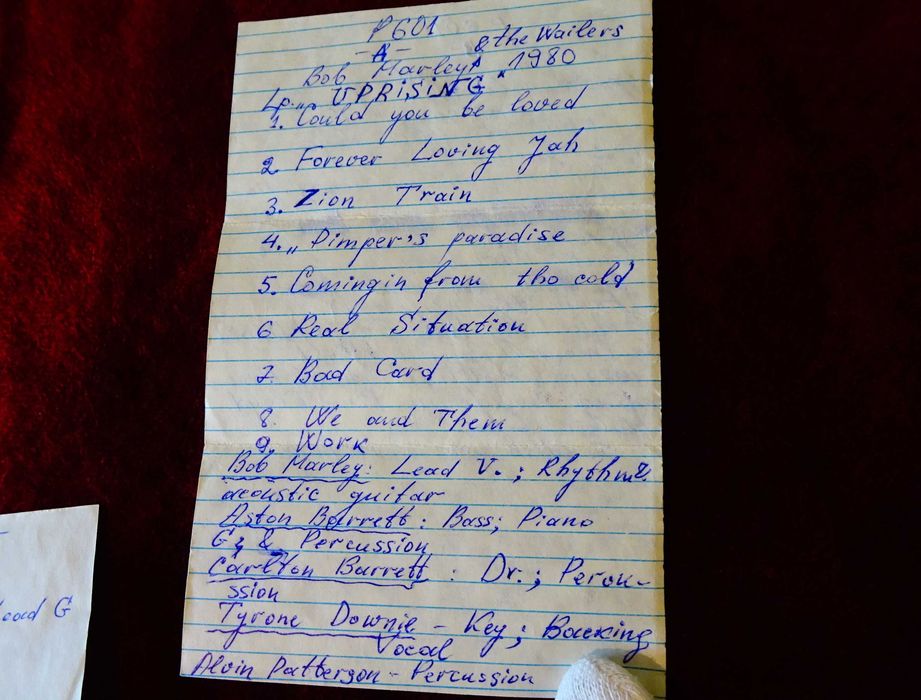 P601
-A-
Bob Marley & the Wailers 1980
Lp. „UPRiSiNG"
1. Could you be loved
2. Forever Loving Jah
3. Zion Train
4. „Pimper's paradise
5. Comingin from the cold
6. Real Situation
7. Bad Card
8. We and Them
9. Work
Bob Marley: Lead V.; Rhythm &
acoustic guitar
Aston Barrett: Bass; Piano
G; & Percussion
Carlton Barrett: Dr.; Percu-
ssion
Tyrone Downie - Key; Backing
Vocal
Alvin Patterson - Percussion
Lead G